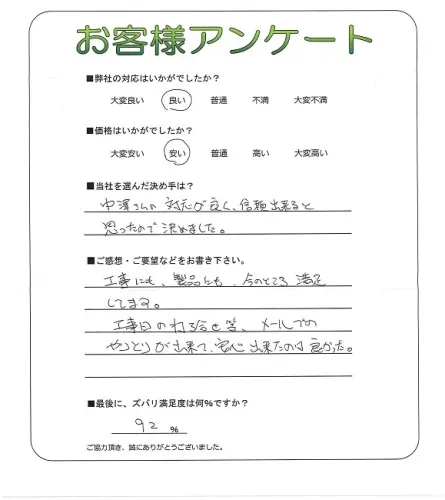 お客様アンケート
■弊社の対応はいかがでしたか？
大変良い 良い 普通 不満 大変不満
■価格はいかがでしたか？
大変安い 安い 普通 高い 大変高い
■当社を選んだ決め手は？
中澤さんの対応が良く、信頼出来ると
思ったので決めました。
■ご感想・ご要望などをお書き下さい。
工事にも、製品にも、今のところ満足
してます。
工事日の打合せ等、メールでの
やりとりが出来て、安心出来たのは良かった。
■最後に、ズバリ満足度は何％ですか？
92 %
ご協力頂き、誠にありがとうございました。